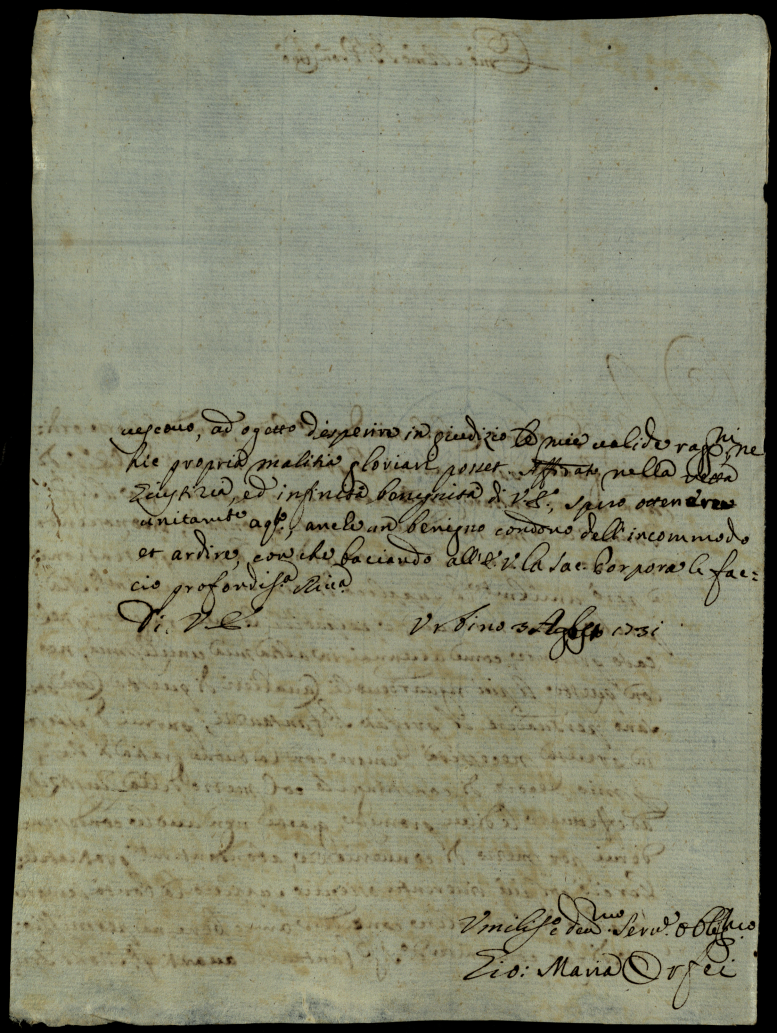 vescovo, ad ogetto d'esperire in giudizio le mie valide raggioni, ne
hic propria malitia gloriari posset. Affidato nella retta
Giustizia, ed infinita benignità di V. E., spero ottenere
unitam.te a q.to, anche un benigno condono dell'incommodo
et ardire, con che baciando all'E. V. la Sac. Porpora le fac=
cio profondiss.a Riv.a
Di V. E. Urbino 3 Agosto 1731
Umiliss.o e dev.mo Serv.e Obblig.mo
Gio: Maria Orfei